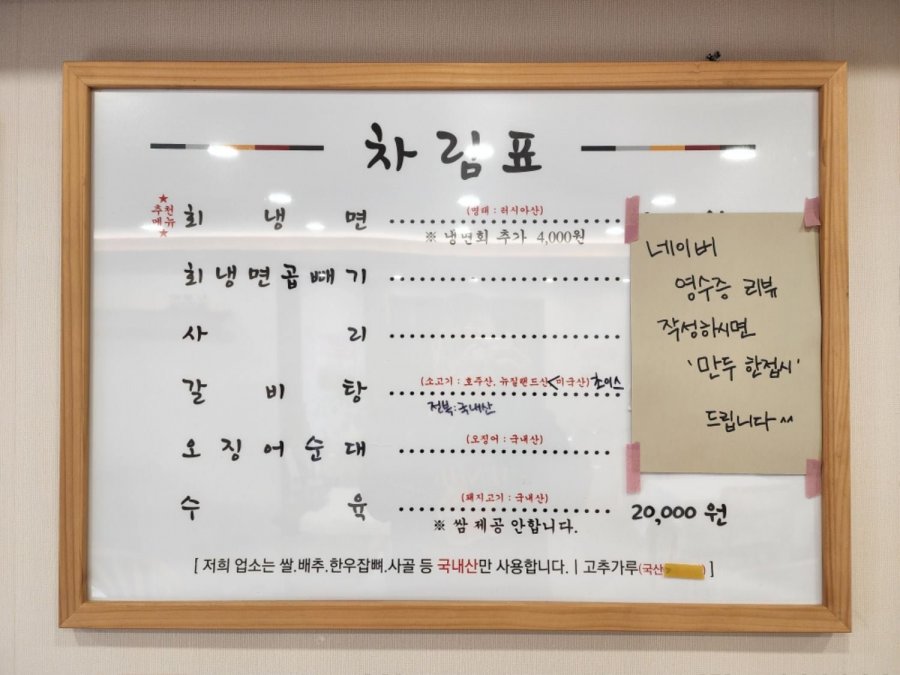 차림표
추천
메뉴
회 냉 면 (명태 : 러시아산)
※ 냉면회 추가 4,000원
회냉면곱빼기
사 리
갈 비 탕 (소고기 : 호주산, 뉴질랜드산<미국산) 초이스
전복:국내산
오징어순대 (오징어 : 국내산)
수 육 (돼지고기 : 국내산) 20,000 원
※ 쌈 제공 안합니다.
[ 저희 업소는 쌀.배추.한우잡뼈.사골 등 국내산만 사용합니다. | 고추가루(국산 ) ]
네이버
영수증 리뷰
작성하시면
'만두 한접시'
드립니다^^